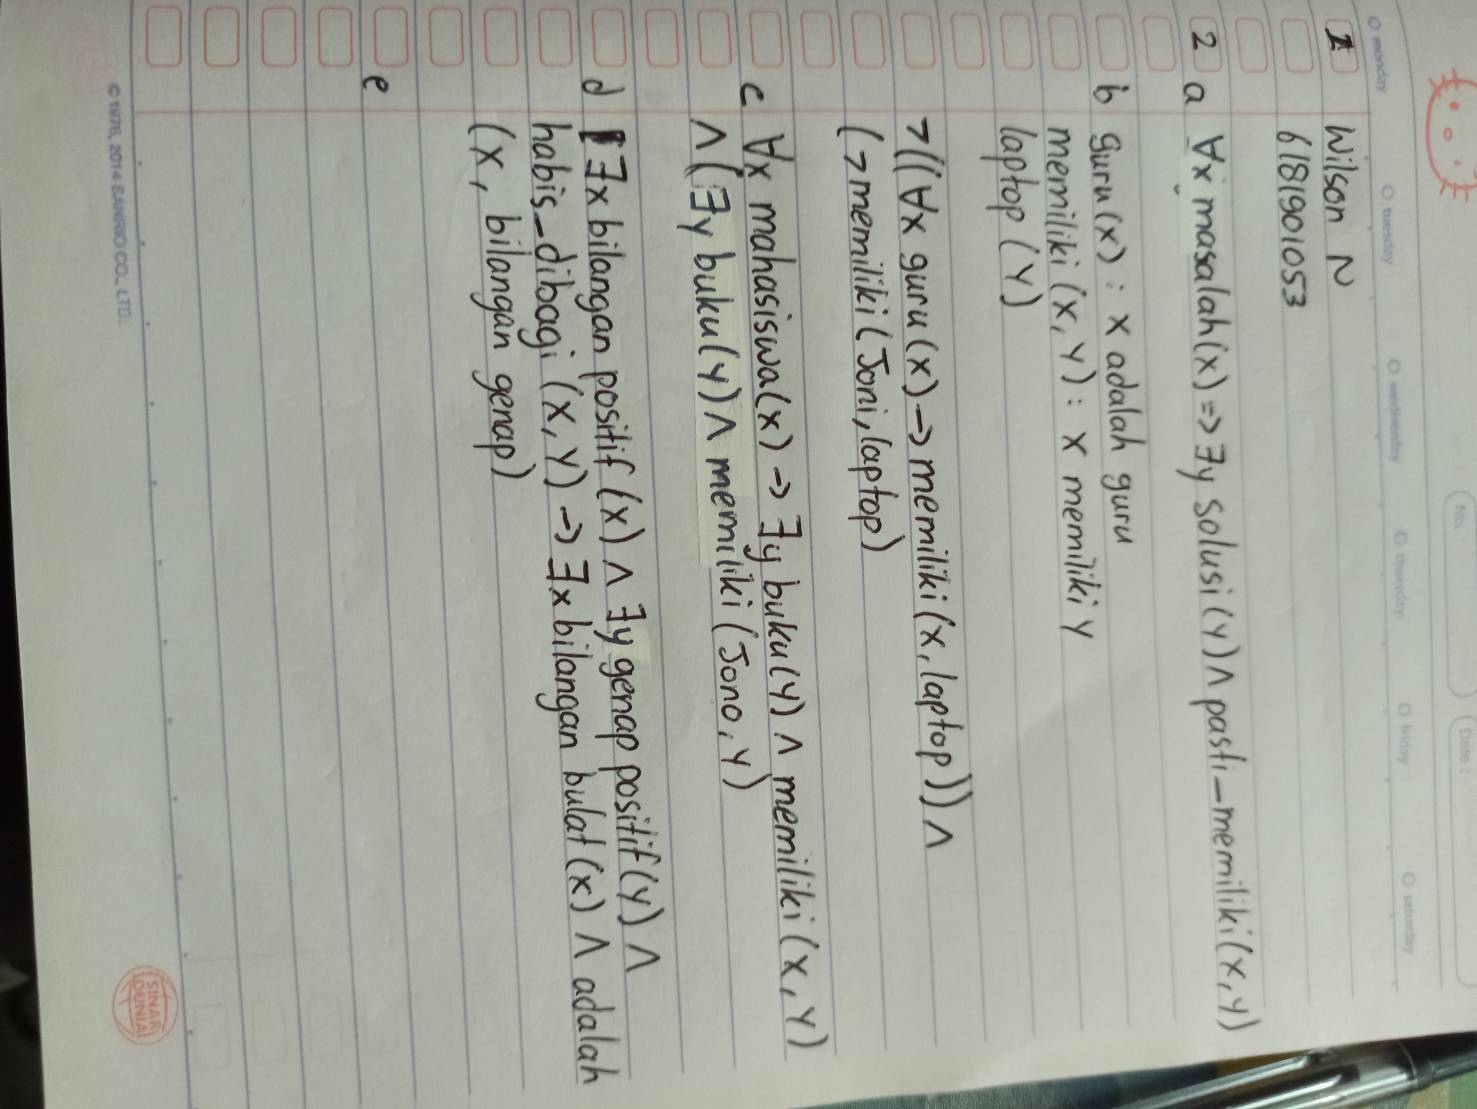 No. Date:
monday tuesday wednesday thursday friday saturday
1 Wilson N
6181901053
2 a ∀x masalah(x) => ∃y solusi(y) ∧ pasti_memiliki(x,y)
b guru(x) : x adalah guru
memiliki(x,y) : x memiliki y
laptop(y)
>((∀x guru(x) -> memiliki(x, laptop)) ∧
(>memiliki(Joni, laptop)
c ∀x mahasiswa(x) -> ∃y buku(y) ∧ memiliki(x,y)
∧ (∃y buku(y) ∧ memiliki(Jono, y)
d ∃x bilangan positif(x) ∧ ∃y genap positif(y) ∧
habis_dibagi(x,y) -> ∃x bilangan bulat(x) ∧ adalah
(x, bilangan genap)
e
© 1976, 2014 SANRIO CO., LTD.
SINAR
DUNIA